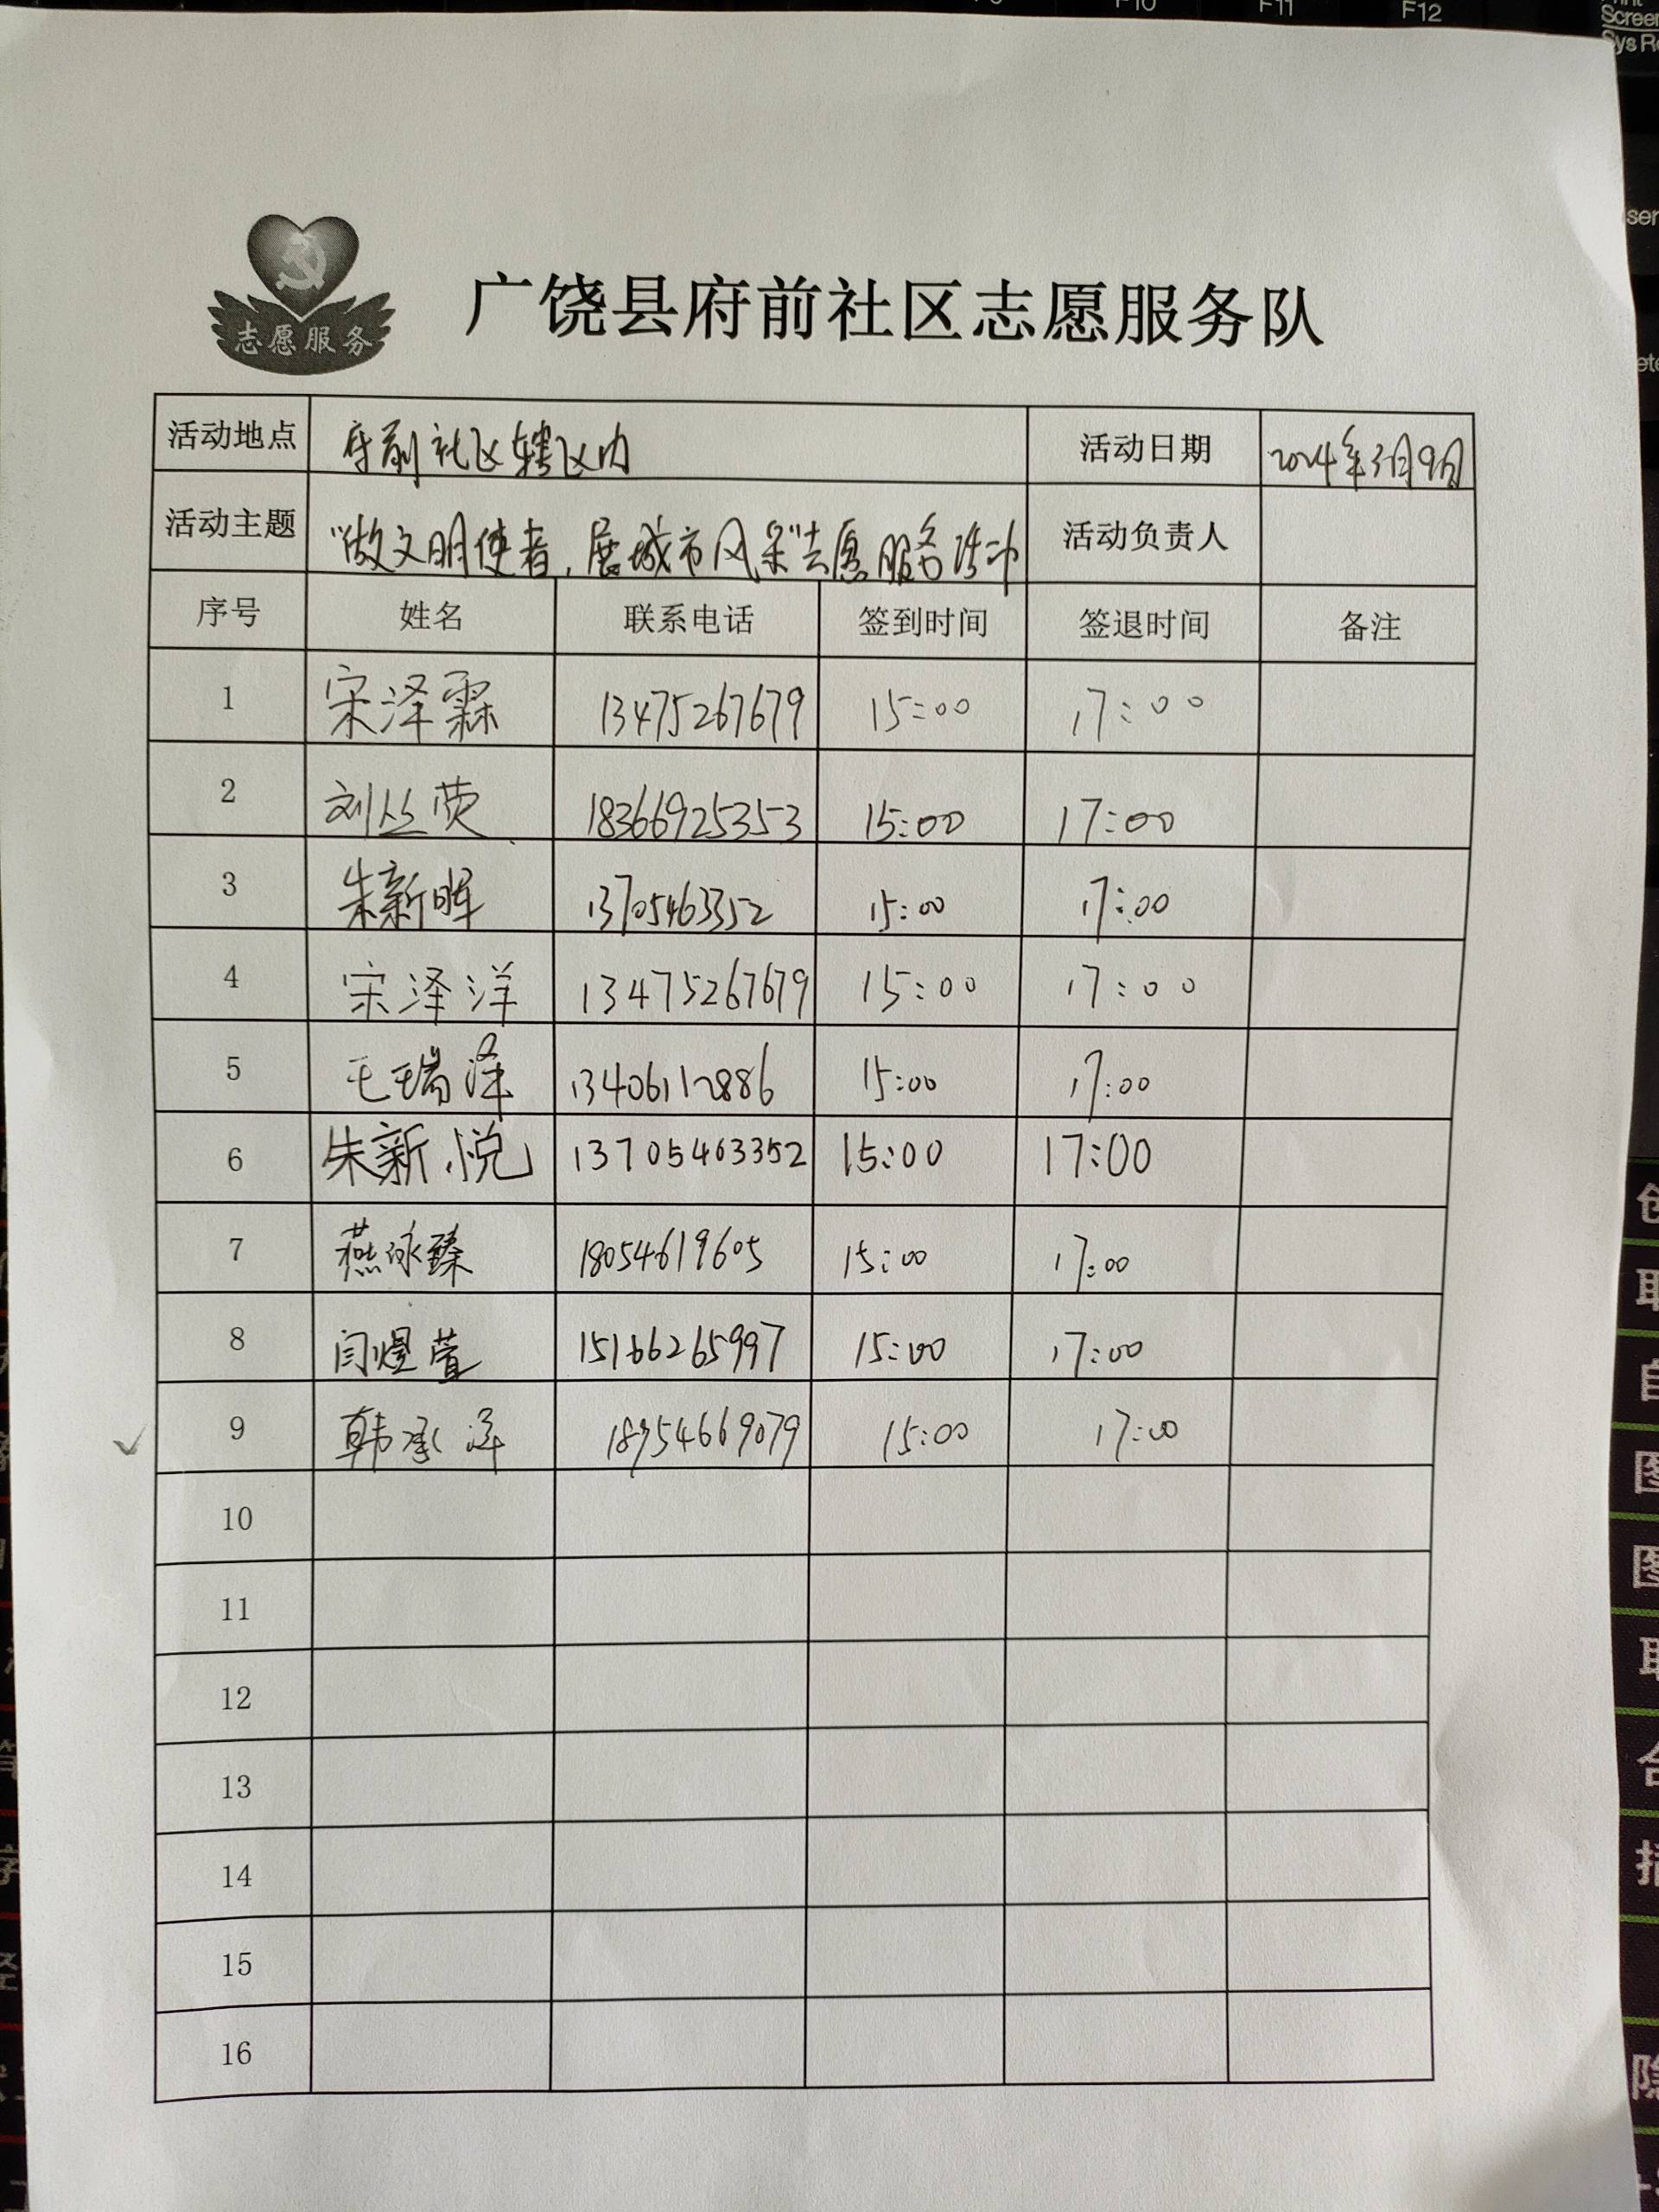 F10 F11 F12
Screen
志愿服务
广饶县府前社区志愿服务队
活动地点 府前社区辖区内 活动日期 2024年3月9日
活动主题 “做文明使者,展城市风采”志愿服务活动 活动负责人
序号 姓名 联系电话 签到时间 签退时间 备注
1 宋泽霖 13475267679 15:00 17:00
2 刘丛荧 18366925353 15:00 17:00
3 朱新晖 13705463352 15:00 17:00
4 宋泽洋 13475267679 15:00 17:00
5 王瑞泽 13406112886 15:00 17:00
6 朱新悦 13705463352 15:00 17:00
7 燕咏臻 18054619605 15:00 17:00
8 闫煜萱 15166265997 15:00 17:00
9 韩承泽 18954669079 15:00 17:00
10
11
12
13
14
15
16